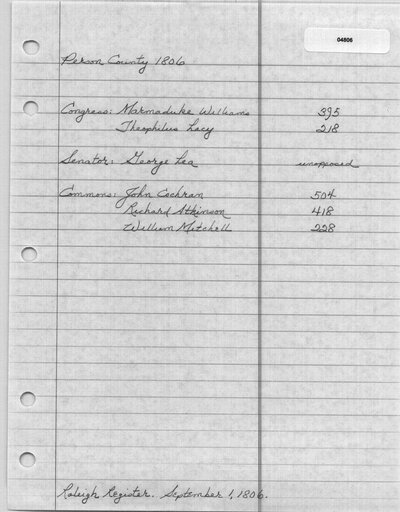 04806
Person County 1806
Congress: Marmaduke Williams 395
Theophilus Lacy 218
Senator: George Lea unopposed
Commons: John Cochran 504
Richard Atkinson 418
William Mitchell 228
Raleigh Register. September 1, 1806.